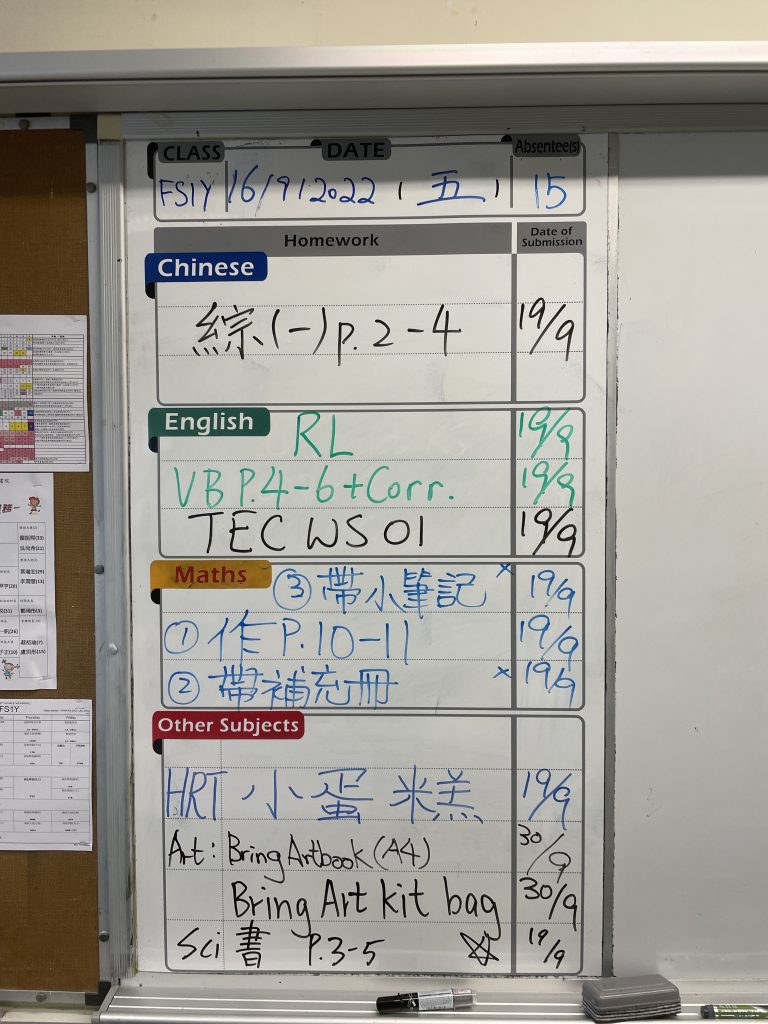 CLASS DATE Absentee(s)
FS1Y 16/9/2022 (五) 15
Homework Date of Submission
Chinese
綜(一)p.2-4 19/9
English
RL 19/9
VB P.4-6+Corr. 19/9
TEC WS 01 19/9
Maths
③帶小筆記 × 19/9
①作P.10-11 19/9
②帶補充冊 × 19/9
Other Subjects
HRT 小蛋糕 19/9
Art: Bring Artbook (A4) 30/9
Bring Art kit bag 30/9
Sci 書 P.3-5 19/9
FS1Y
Thursday Friday